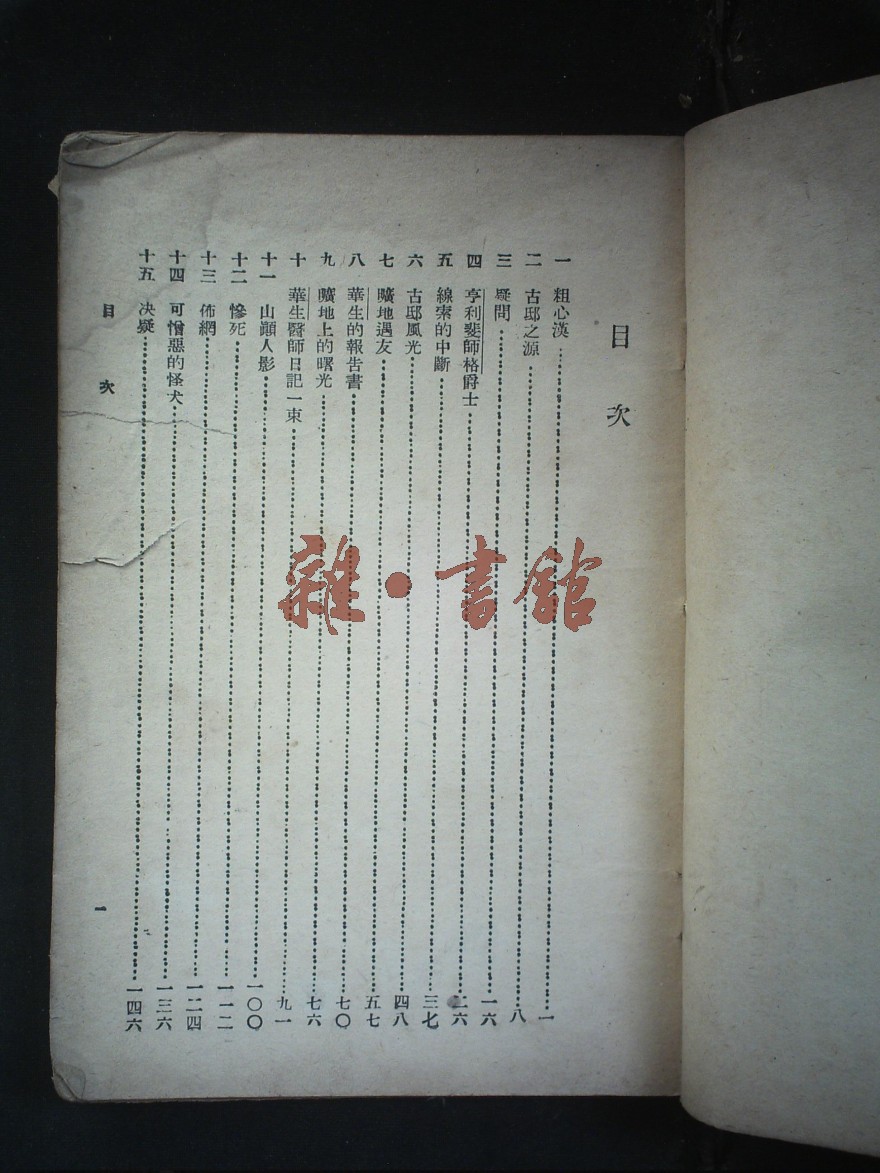 目次
一 粗心漢 一
二 古邸之源 八
三 疑問 一六
四 亨利斐師格爵士 二六
五 線索的中斷 三七
六 古邸風光 四八
七 曠地遇友 五七
八 華生的報告書 七〇
九 曠地上的曙光 七六
十 華生醫師日記一束 九一
十一 山顚人影 一〇〇
十二 慘死 一一二
十三 佈網 一二四
十四 可憎惡的怪犬 一三六
十五 决疑 一四六
目次
一
雜·書舘